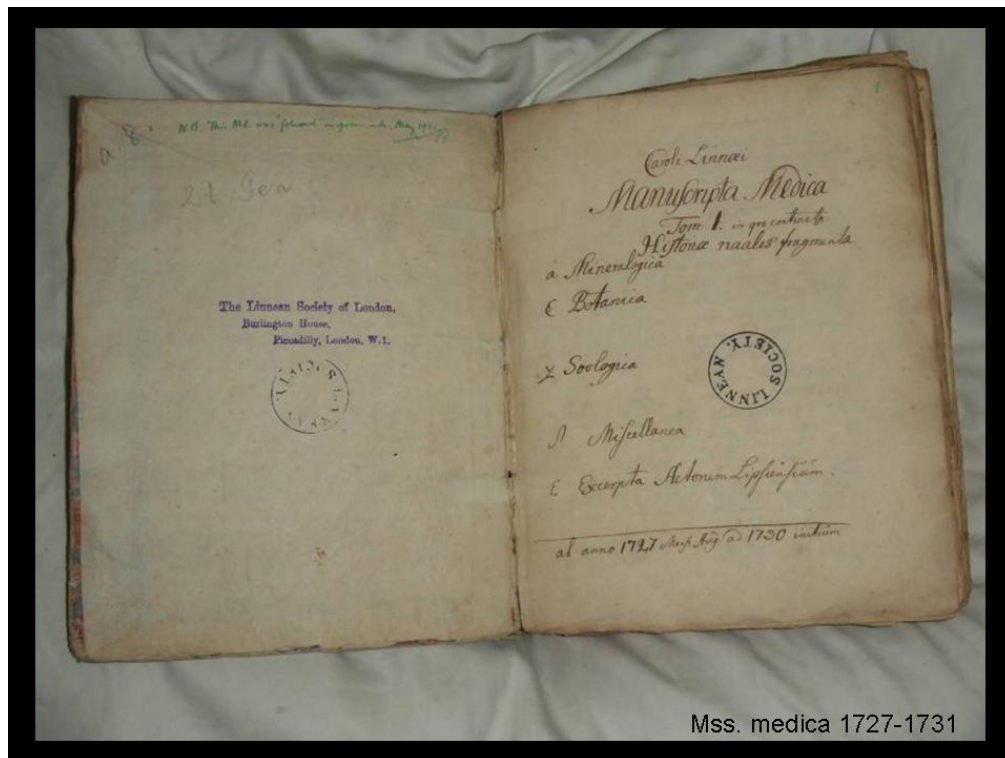 N.B. This MS. was "foliated" in green ink, May
a. 8
The Linnean Society of London,
Burlington House,
Piccadilly, London, W.1.
1
Caroli Linnæi
Manuscripta Medica
Tom I. in quo continetr
Historiæ naalis fragmenta
α Mineralogica
Botanica
γ Zoologica
Miscellanea
ε Excerpta Actorum Lipsiensium.
ab anno 1727 Mens. Aug. ad 1730 initium
LINNEAN SOCIETY.
Mss. medica 1727-1731